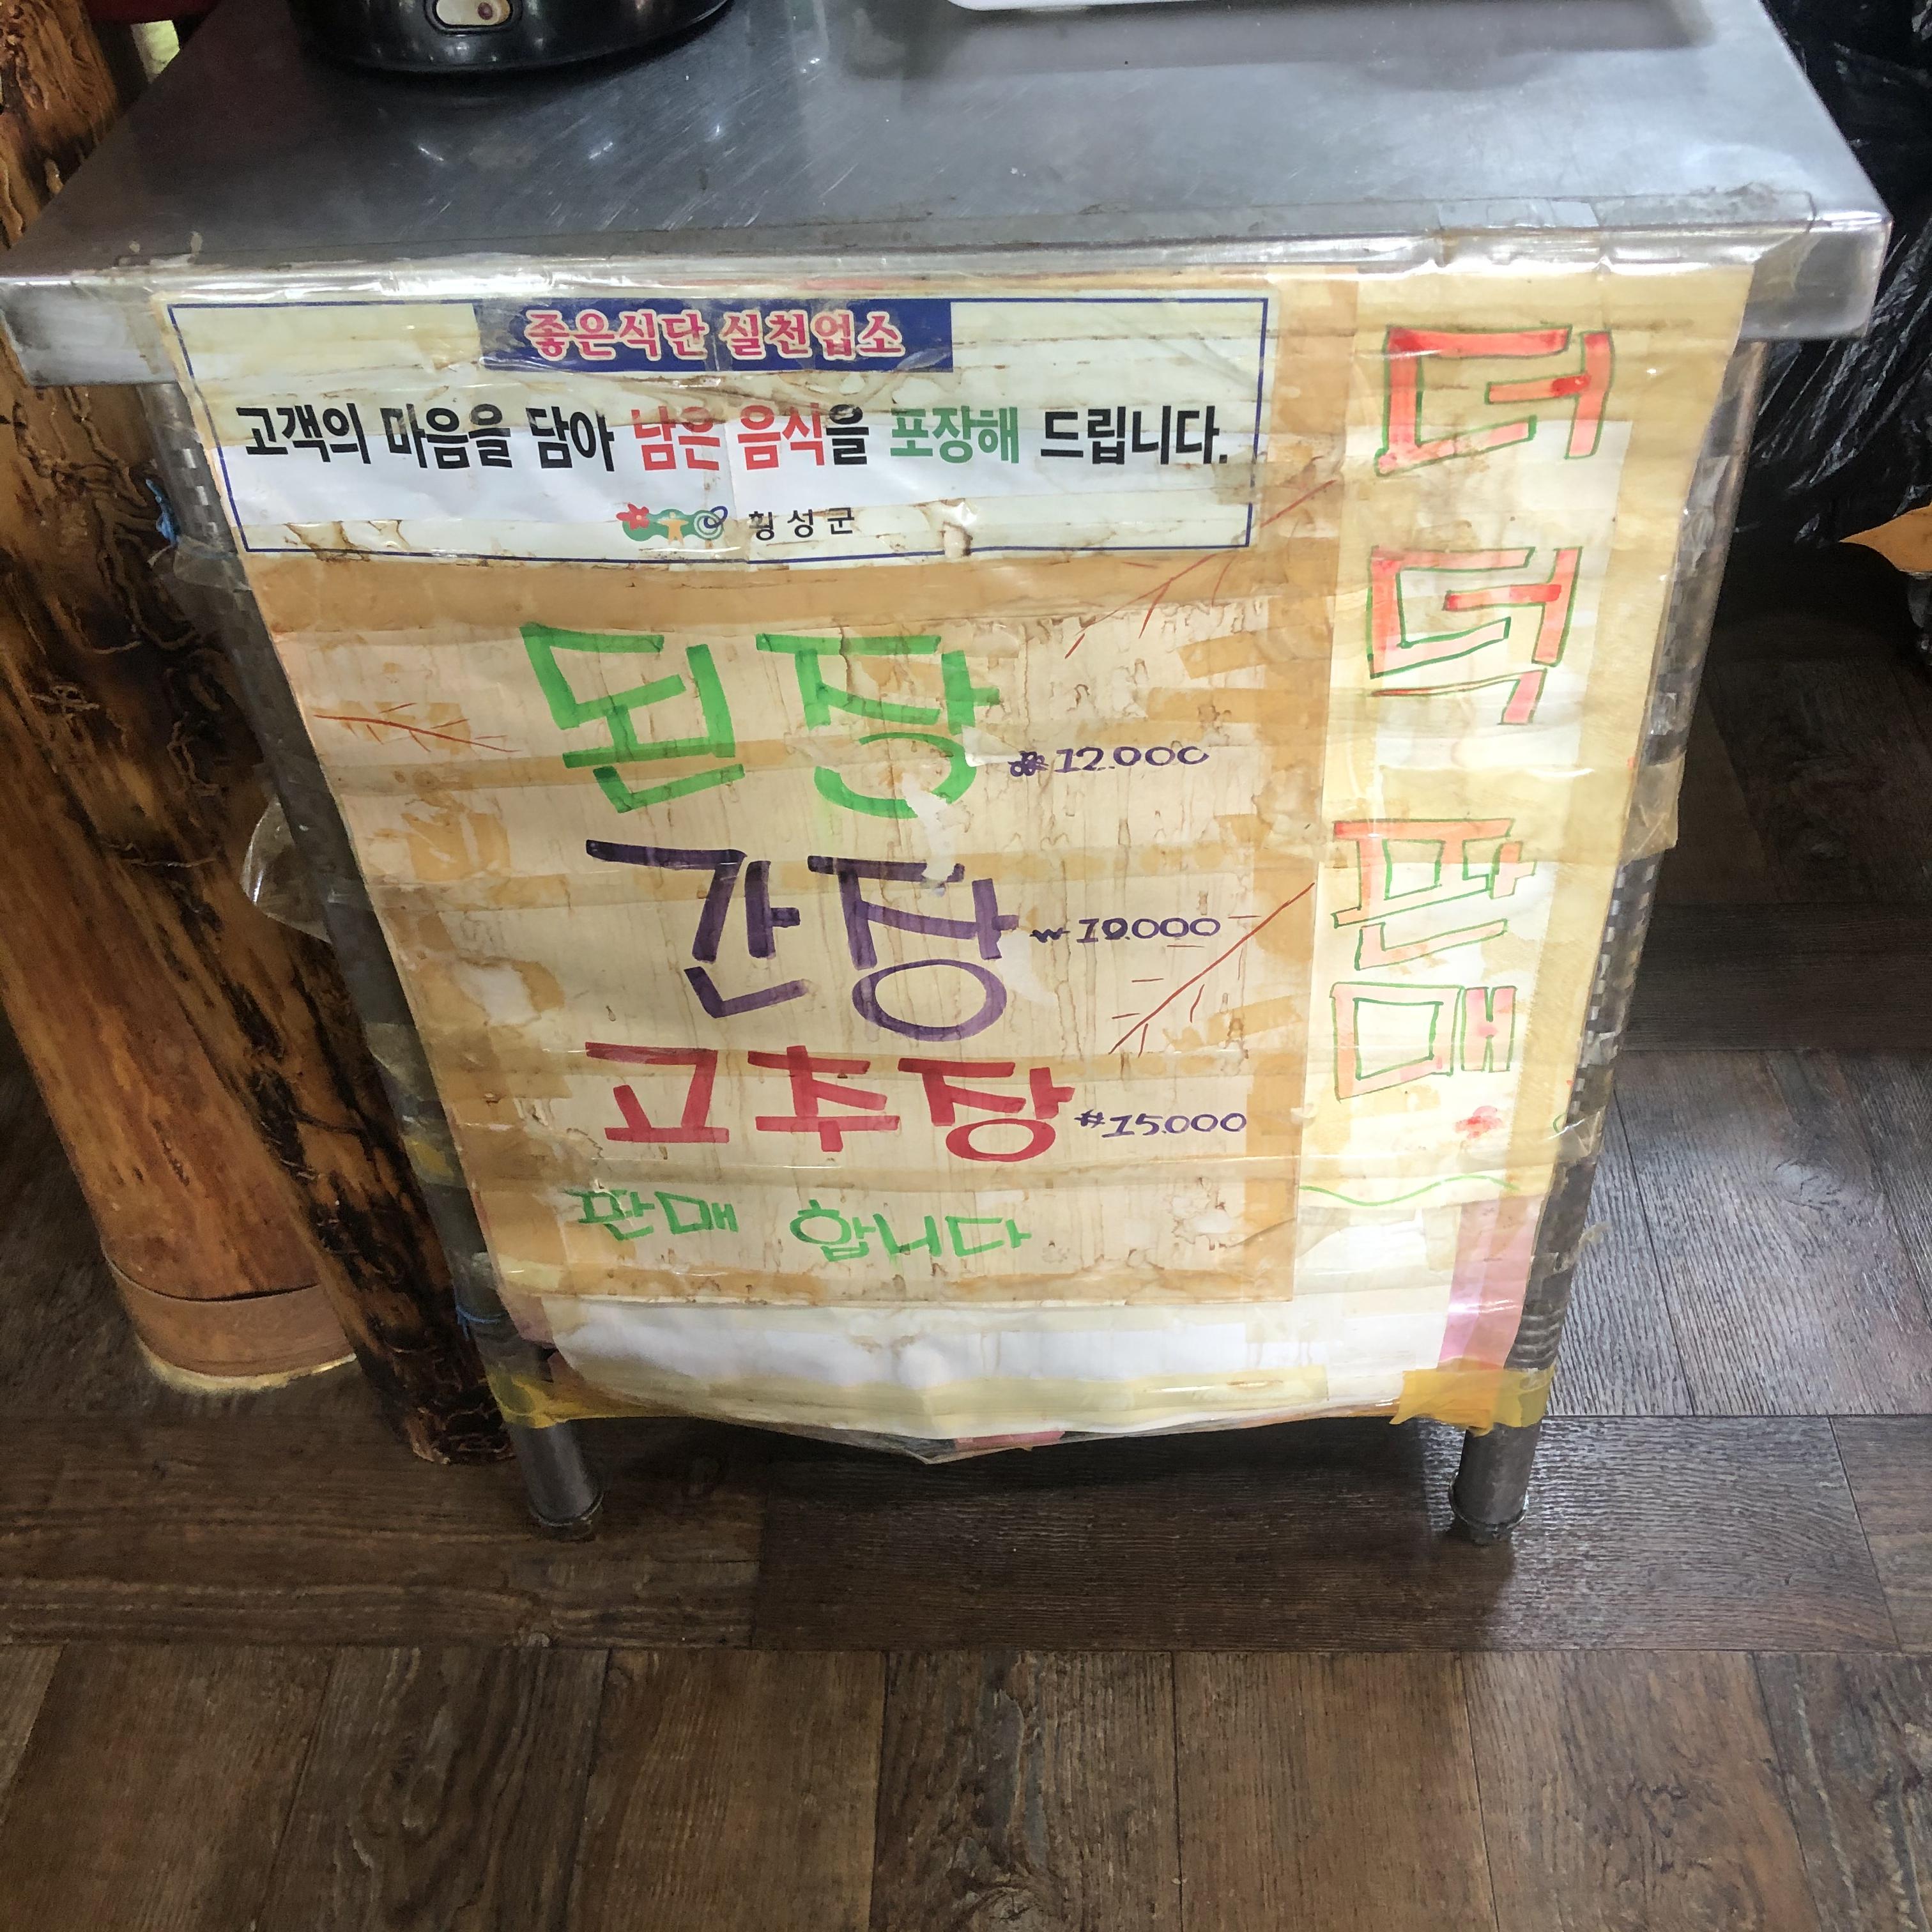 좋은식단 실천업소
고객의 마음을 담아 남은 음식을 포장해 드립니다.
횡성군
된장 ₩12.000
간장 ₩10.000
고추장 ₩15.000
판매 합니다
더
덕
판
매